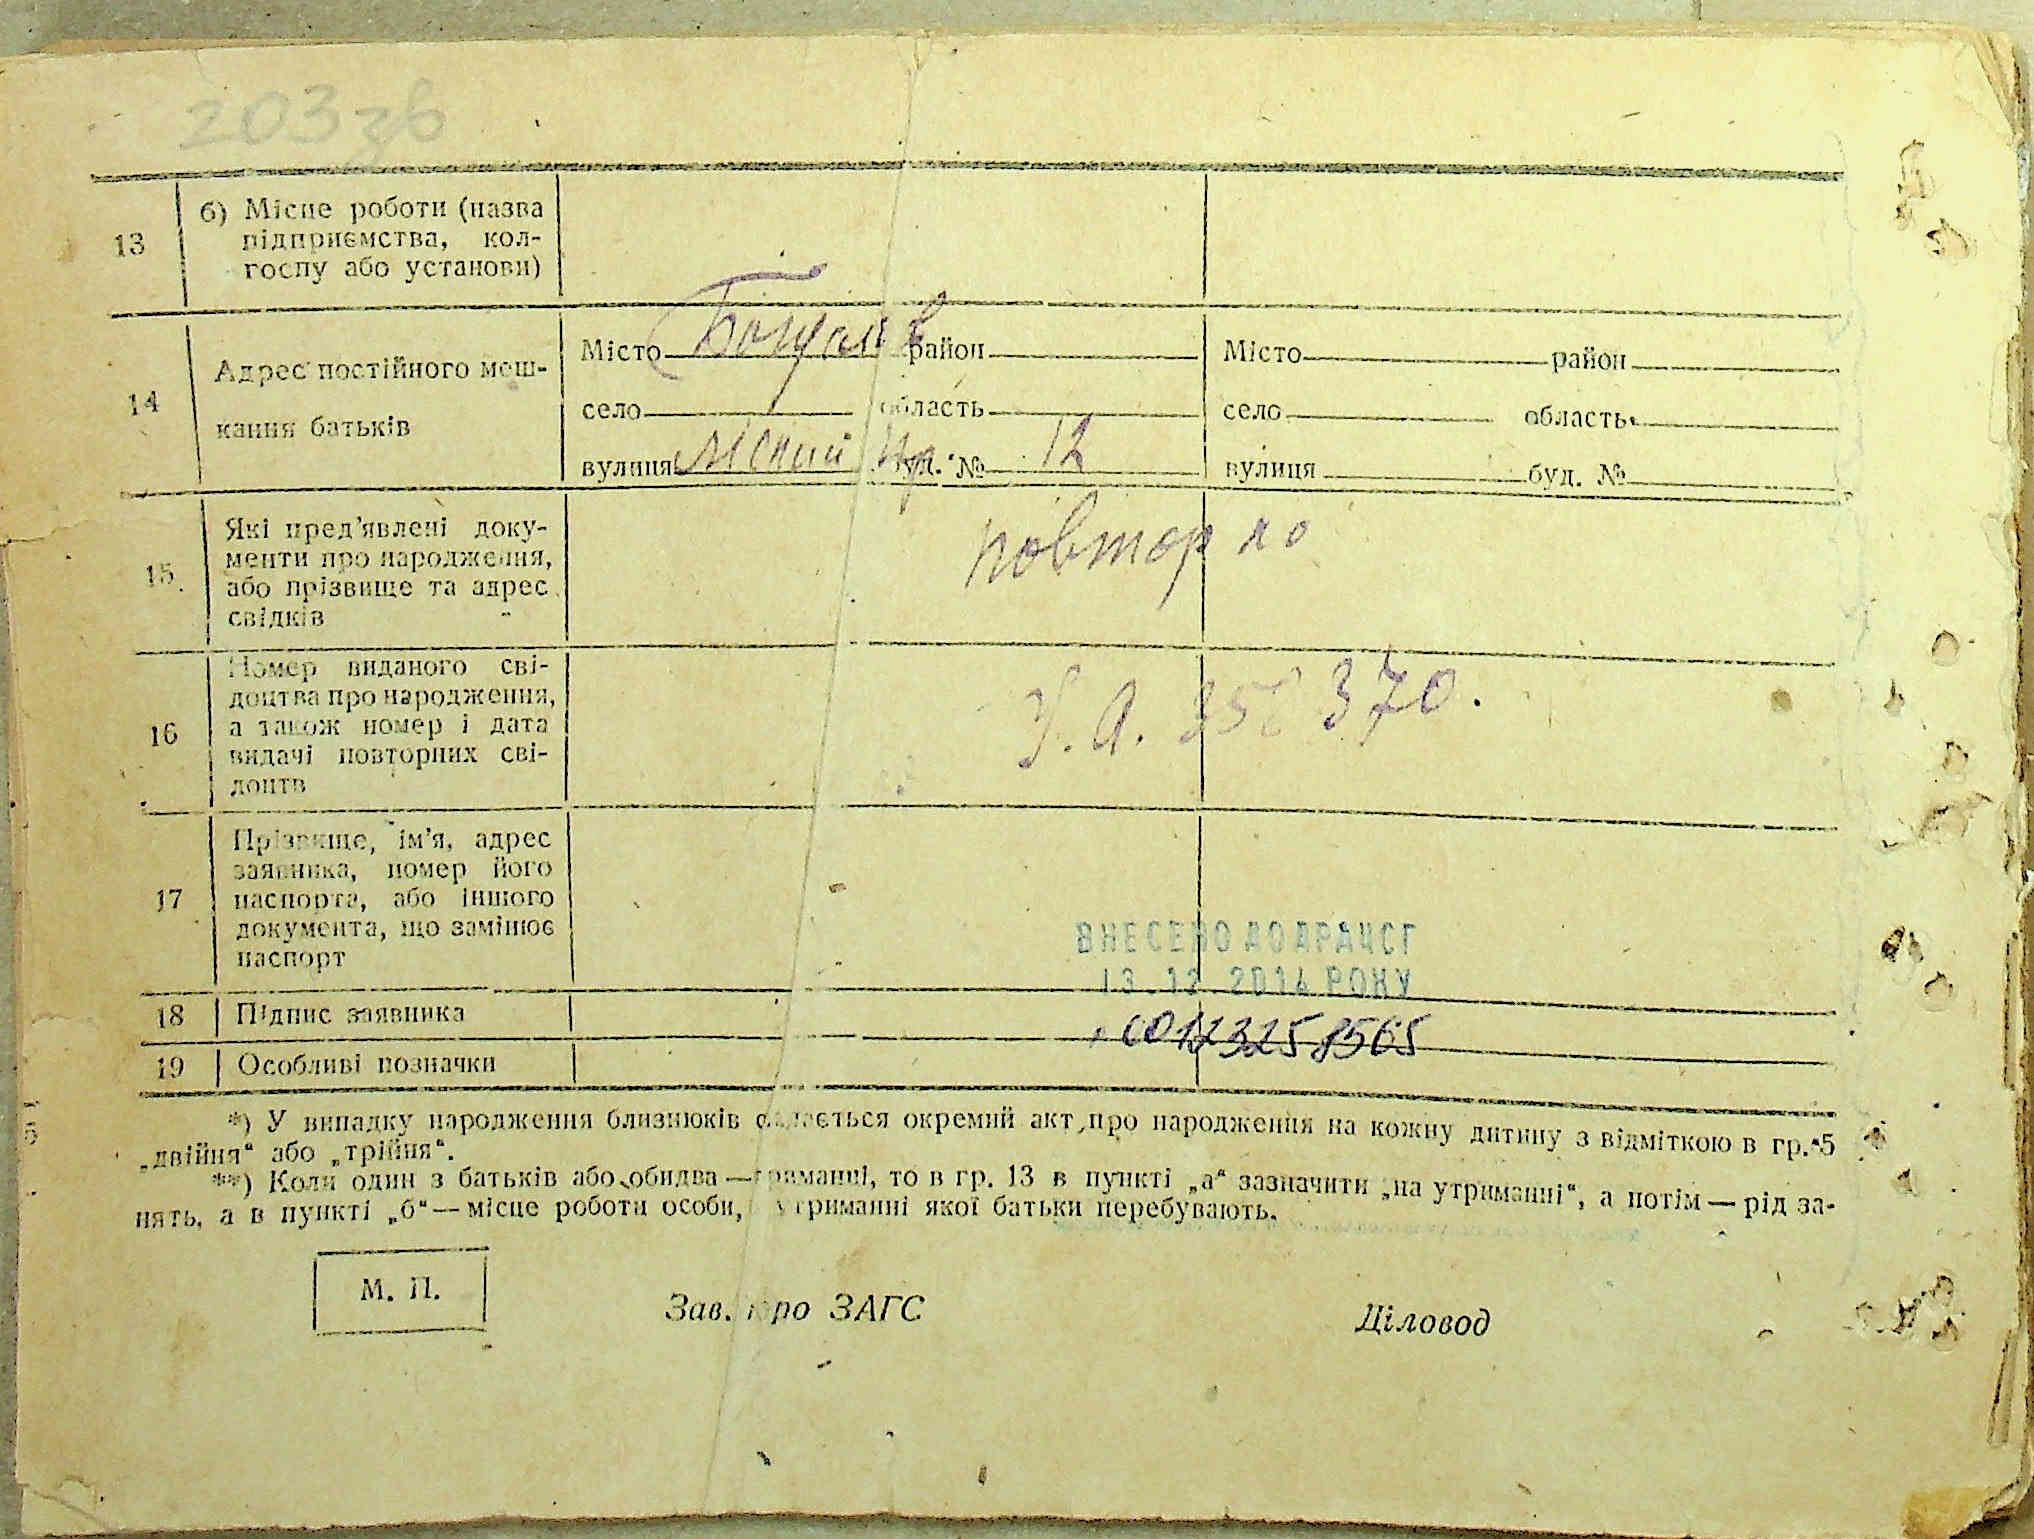 203 зв
13
б) Місце роботи (назва
підприємства, кол-
госпу або установи)
14
Адрес постійного меш-
кання батьків
Місто район
село область
вулиця буд. № 12
Місто район
село область
вулиця буд. №
15
Які пред'явлені доку-
менти про народження,
або прізвище та адрес
свідків
повторно
16
Номер виданого сві-
доцтва про народження,
а також номер і дата
видачі повторних сві-
доцтв
У. А. 370.
17
Прізвище, ім'я, адрес
заявника, номер його
паспорта, або іншого
документа, що замінює
паспорт
ВНЕСЕНО ДО ДРАЦСГ
13.12.2014 РОКУ
18
Підпис заявника
00123258565
19
Особливі позначки
*) У випадку народження близнюків складається окремий акт про народження на кожну дитину з відміткою в гр. 5
„двійня“ або „трійня“.
**) Коли один з батьків або обидва — утриманці, то в гр. 13 в пункті „а“ зазначити „на утриманні“, а потім — рід за-
нять, а в пункті „б“ — місце роботи особи, утриманні якої батьки перебувають.
М. П.
Зав. бюро ЗАГС
Діловод